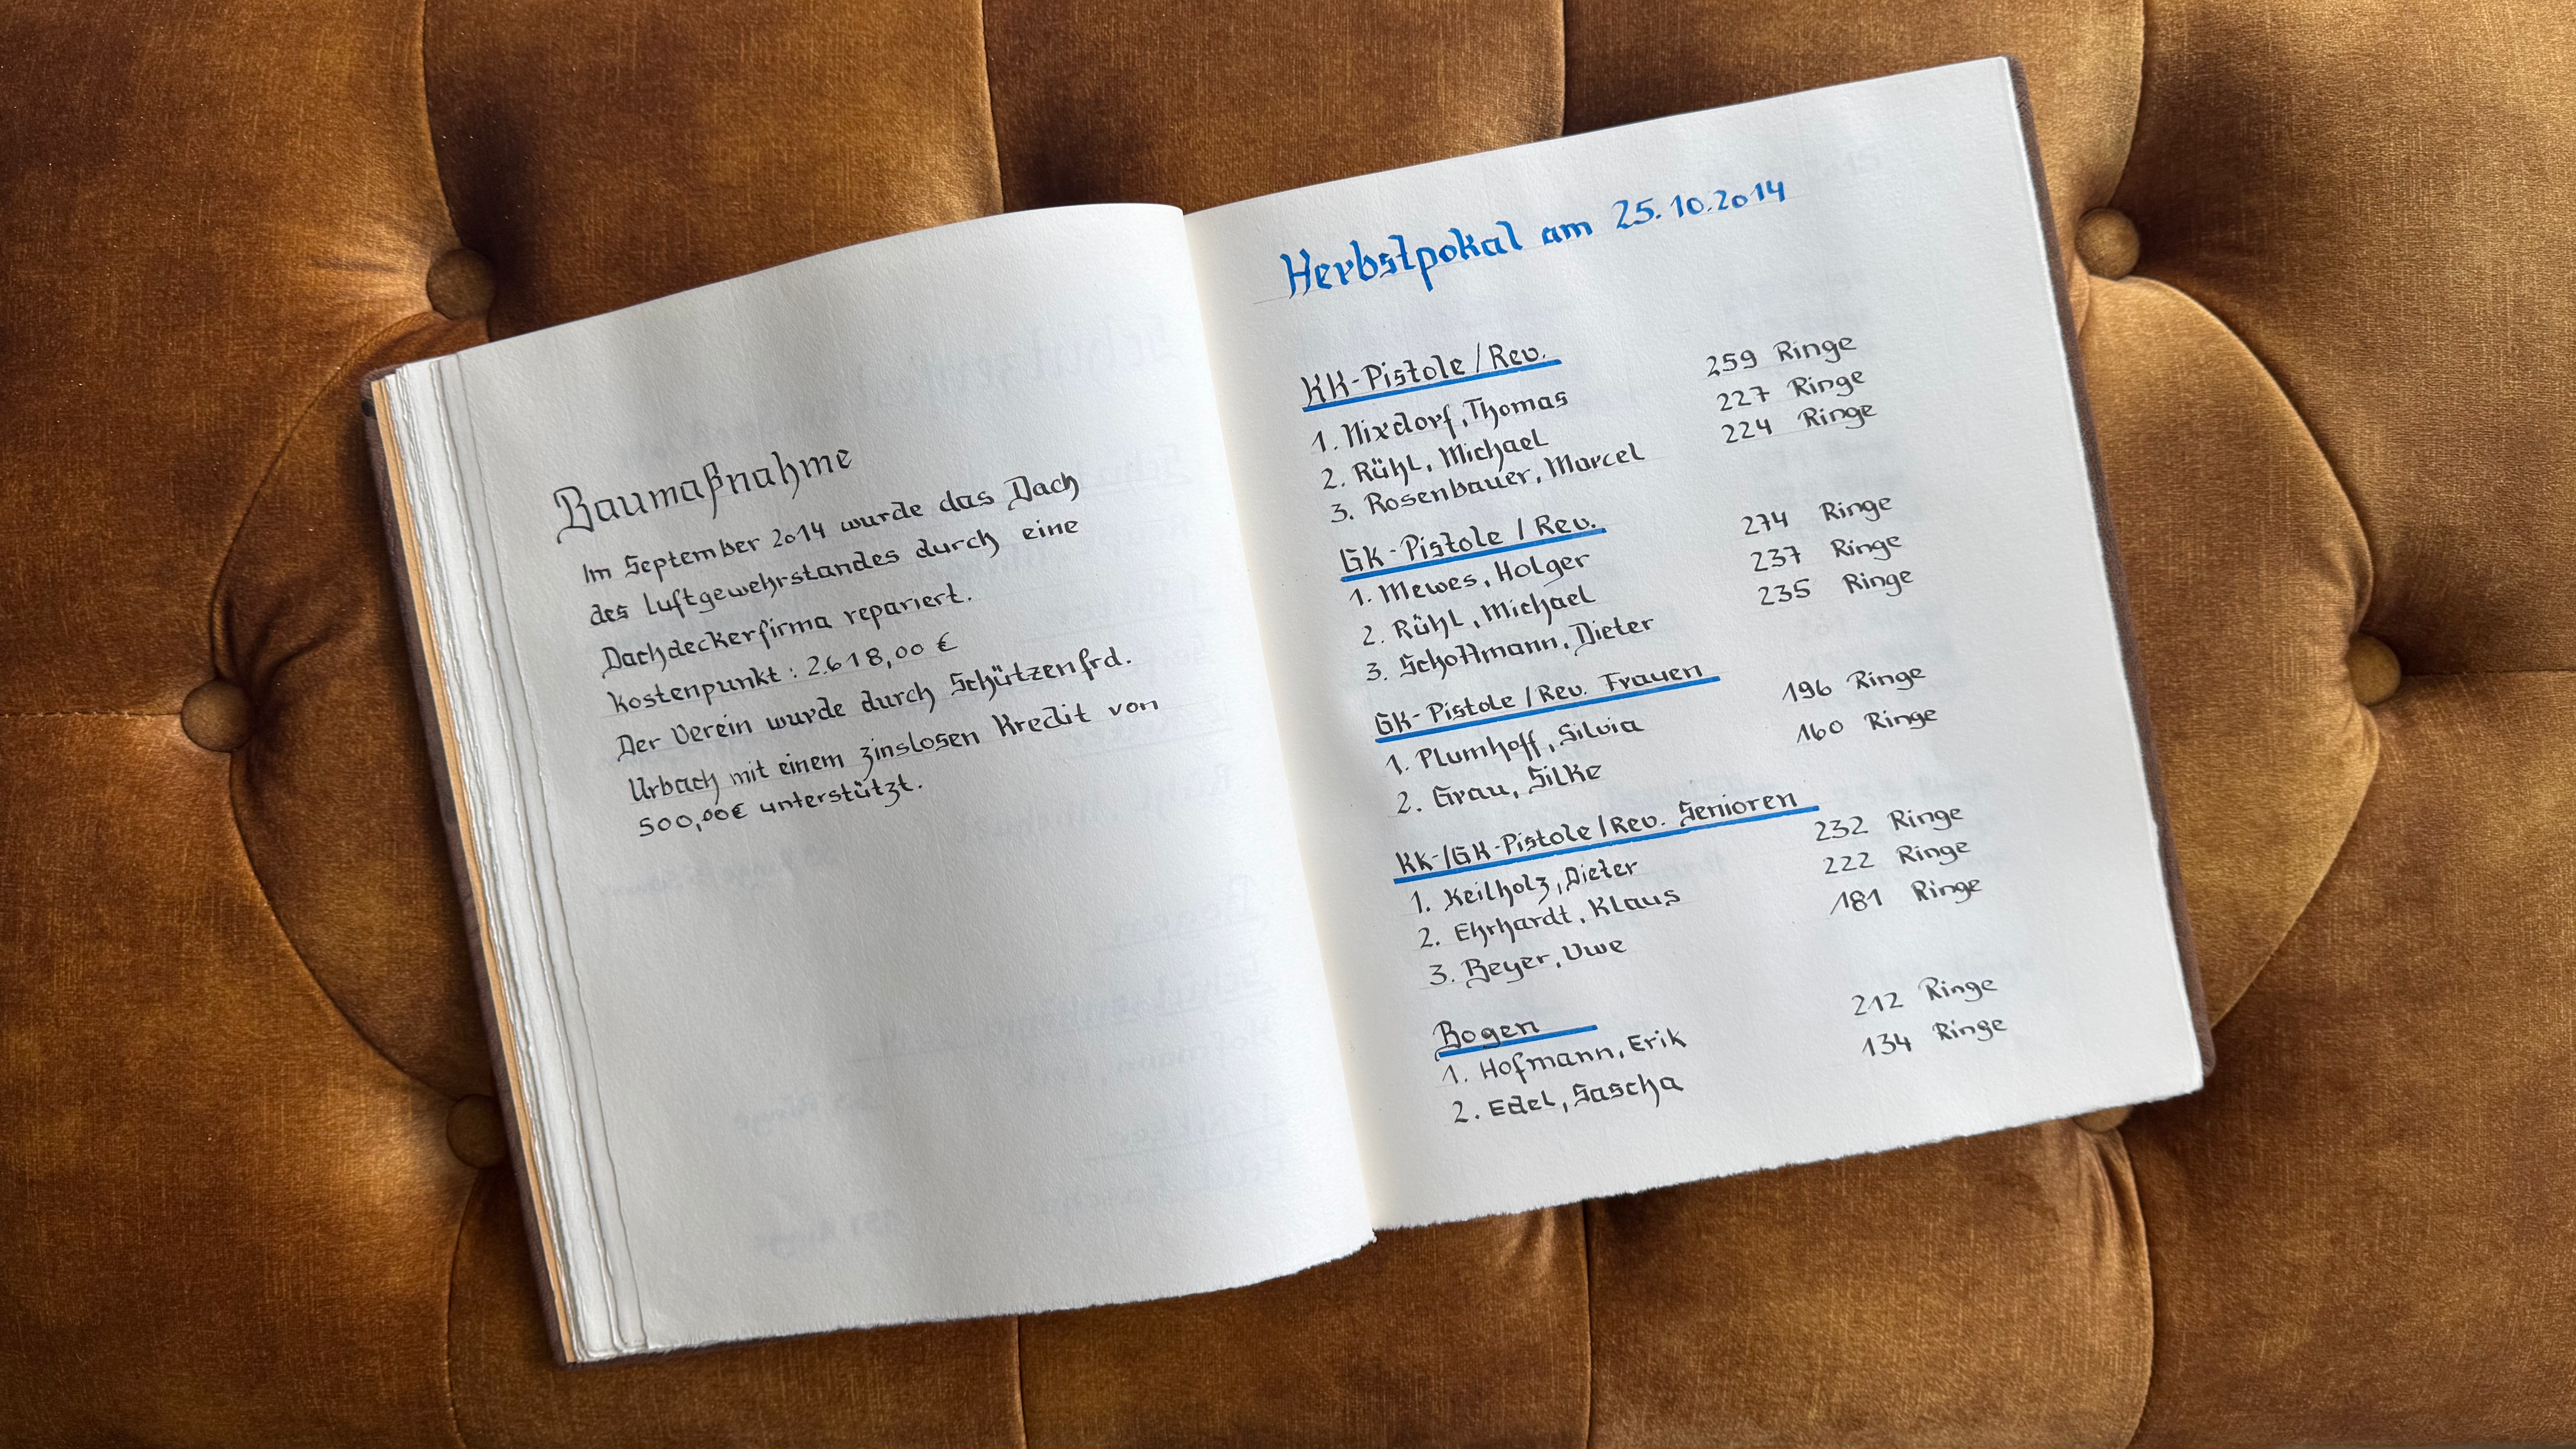 Baumaßnahme
Im September 2014 wurde das Dach
des Luftgewehrstandes durch eine
Dachdeckerfirma repariert.
Kostenpunkt : 2.618,00 €
Der Verein wurde durch Schützenfrd.
Urbach mit einem zinslosen Kredit von
500,00€ unterstützt.
Herbstpokal am 25.10.2014
KK-Pistole / Rev.
1. Nixdorf, Thomas 259 Ringe
2. Rühl, Michael 227 Ringe
3. Rosenbauer, Marcel 224 Ringe
GK-Pistole / Rev.
1. Mewes, Holger 274 Ringe
2. Rühl, Michael 237 Ringe
3. Schottmann, Dieter 235 Ringe
GK-Pistole / Rev. Frauen
1. Plumhoff, Silvia 196 Ringe
2. Grau, Silke 160 Ringe
KK-/GK-Pistole / Rev. Senioren
1. Keilholz, Dieter 232 Ringe
2. Ehrhardt, Klaus 222 Ringe
3. Beyer, Uwe 181 Ringe
Bogen
1. Hofmann, Erik 212 Ringe
2. Edel, Sascha 134 Ringe